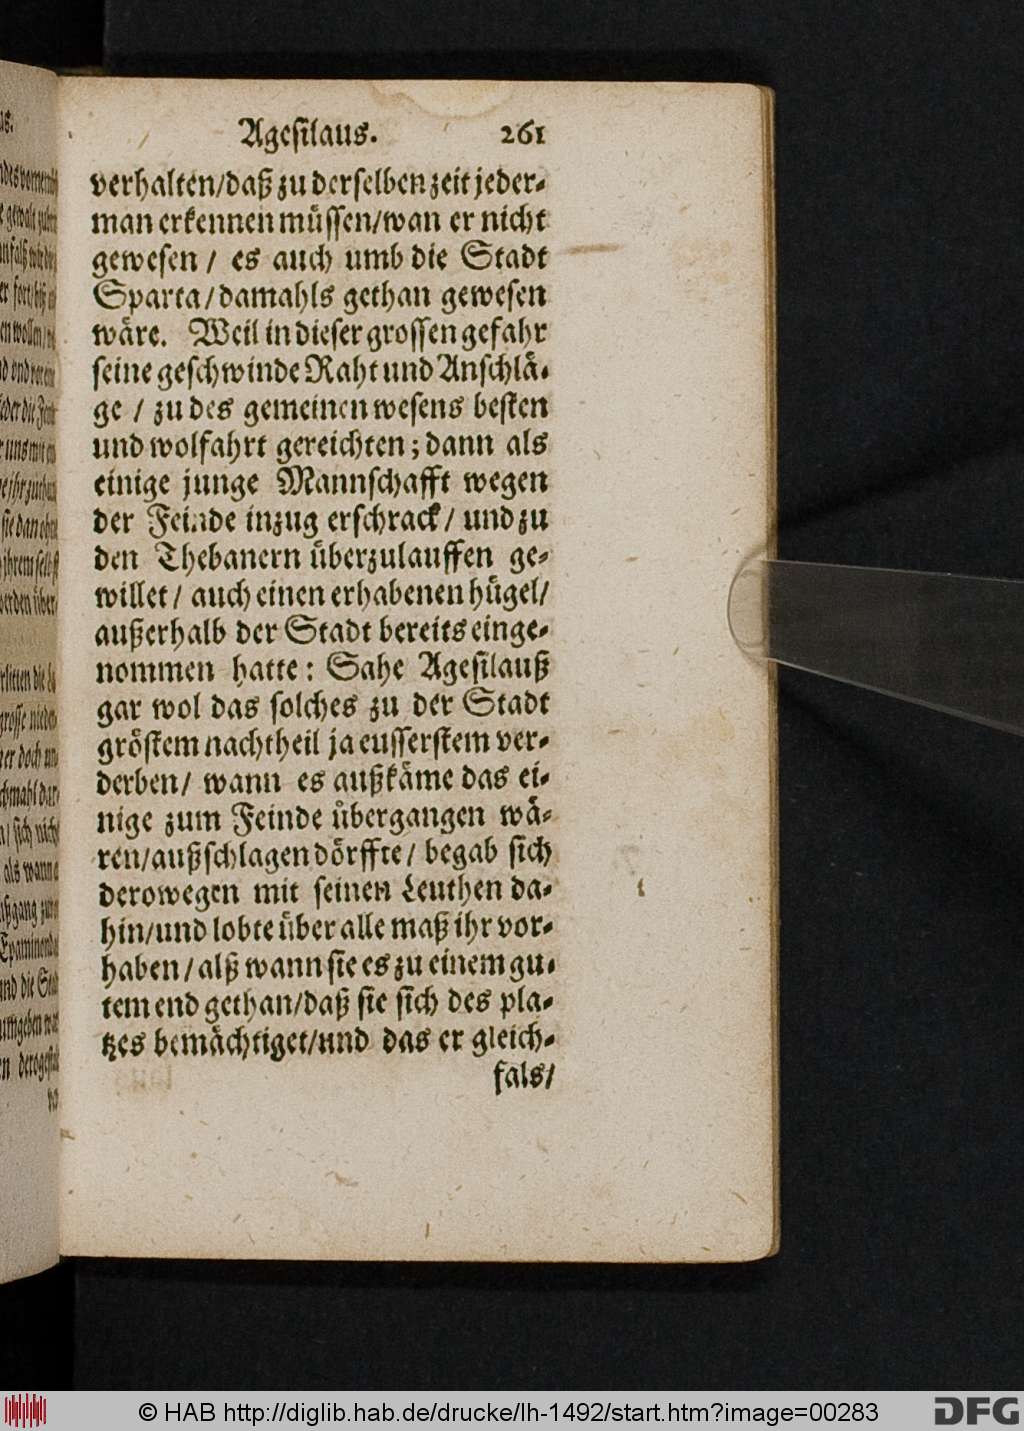 Agesilaus. 261
verhalten/daß zu derselben zeit jeder-
man erkennen müssen/wan er nicht
gewesen / es auch umb die Stadt
Sparta/damahls gethan gewesen
wäre. Weil in dieser grossen gefahr
seine geschwinde Raht und Anschlä-
ge / zu des gemeinen wesens besten
und wolfahrt gereichten; dann als
einige junge Mannschafft wegen
der Feinde inzug erschrack/ und zu
den Thebanern überzulauffen ge-
willet/ auch einen erhabenen hügel/
außerhalb der Stadt bereits einge-
nommen hatte: Sahe Agesilauß
gar wol das solches zu der Stadt
gröstem nachtheil ja eusserstem ver-
derben/ wann es außkäme das ei-
nige zum Feinde übergangen wä-
ren/außschlagen dörffte/ begab sich
derowegen mit seinen Leuthen da-
hin/und lobte über alle maß ihr vor-
haben/alß wann sie es zu einem gu-
tem end gethan/daß sie sich des pla-
tzes bemächtiget/und das er gleich-
fals/
© HAB http://diglib.hab.de/drucke/lh-1492/start.htm?image=00283
DFG